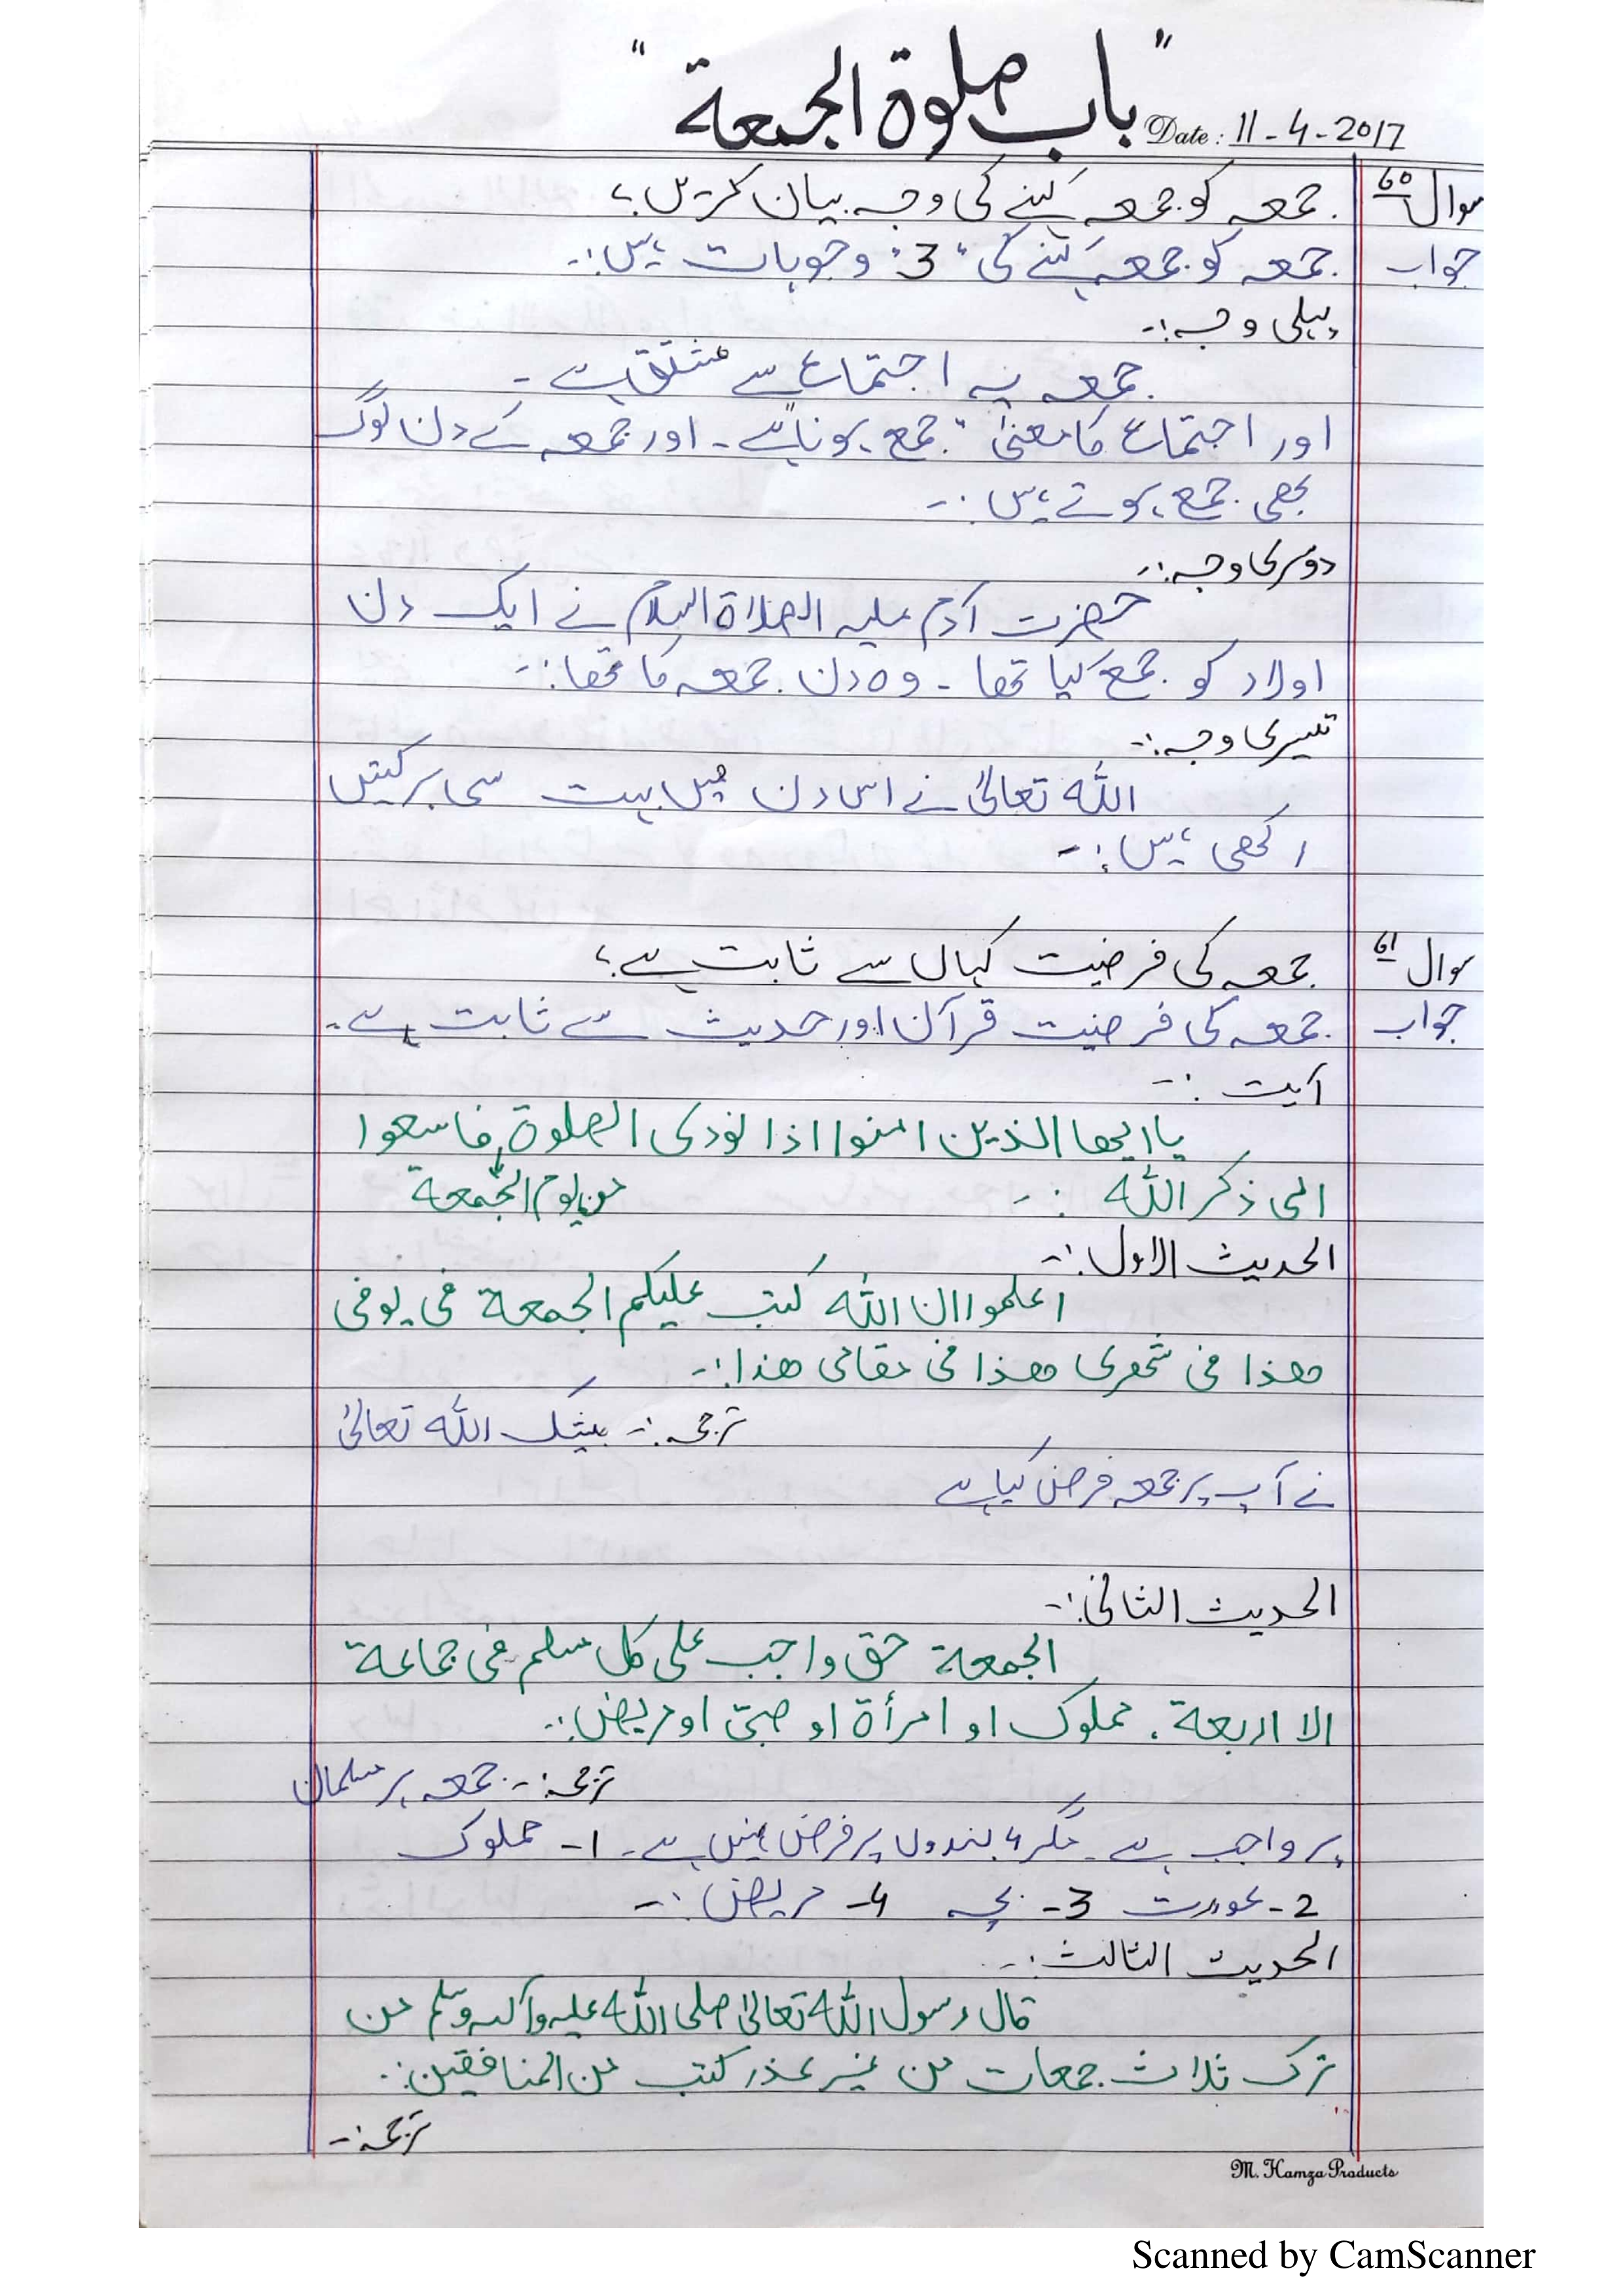 "باب صلوة الجمعة"
Date: 11-4-2017
سوال 60 جمعہ کو جمعہ کہنے کی وجہ بیان کریں؟
جواب جمعہ کو جمعہ کہنے کی "3" وجوہات ہیں:-
پہلی وجہ:-
جمعہ یہ اجتماع سے مشتق ہے -
اور اجتماع کا معنیٰ "جمع ہونا" ہے - اور جمعہ کے دن لوگ
بھی جمع ہوتے ہیں:-
دوسری وجہ:-
حضرت آدم علیہ الصلاۃ السلام نے ایک دن
اولاد کو جمع کیا تھا - وہ دن جمعہ کا تھا:-
تیسری وجہ:-
اللہ تعالیٰ نے اس دن میں بہت سی برکتیں
رکھی ہیں:-
سوال 61 جمعہ کی فرضیت کہاں سے ثابت ہے؟
جواب جمعہ کی فرضیت قرآن اور حدیث سے ثابت ہے -
آیت:-
یا ایھا الذین امنوا اذا نودی الصلوۃ فاسعوا
من یوم الجمعة
الی ذکر اللہ:-
الحدیث الاول:-
اعلموا ان اللہ کتب علیکم الجمعة فی یومی
ھذا فی شھری ھذا فی مقامی ھذا:-
ترجمہ:- بیشک اللہ تعالیٰ
نے آپ پر جمعہ فرض کیا ہے
الحدیث الثانی:-
الجمعة حق واجب علی کل مسلم فی جماعة
الا اربعة، مملوک او امرأة او صبیّ او مریض:-
ترجمہ:- جمعہ ہر مسلمان
پر واجب ہے - مگر 4 بندوں پر فرض نہیں ہے - 1- مملوک
2- عورت 3- بچہ 4- مریض:-
الحدیث الثالث:-
قال رسول اللہ تعالیٰ صلی اللہ علیہ وآلہ وسلم من
ترک ثلاث جمعات من غیر عذر کتب من المنافقین:-
ترجمہ:-
M. Hamza Products
Scanned by CamScanner